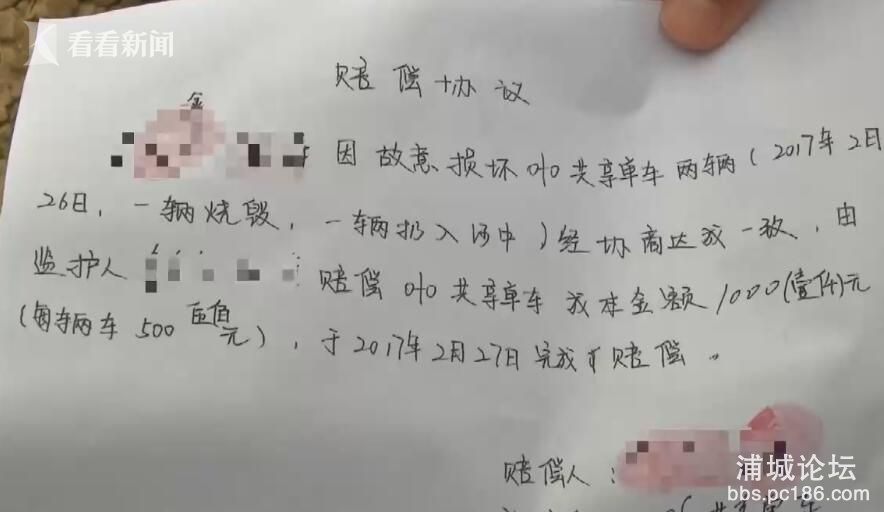 看看新闻
赔偿协议
金
因故意损坏ofo共享单车两辆(2017年2月
26日，一辆烧毁，一辆扔入河中)经协商达成一致，由
监护人 赔偿ofo共享单车成本金额1000(壹仟)元
(每辆车500 元)，于2017年2月27日完成 赔偿。
赔偿人：
浦城论坛
bbs.pc186.com